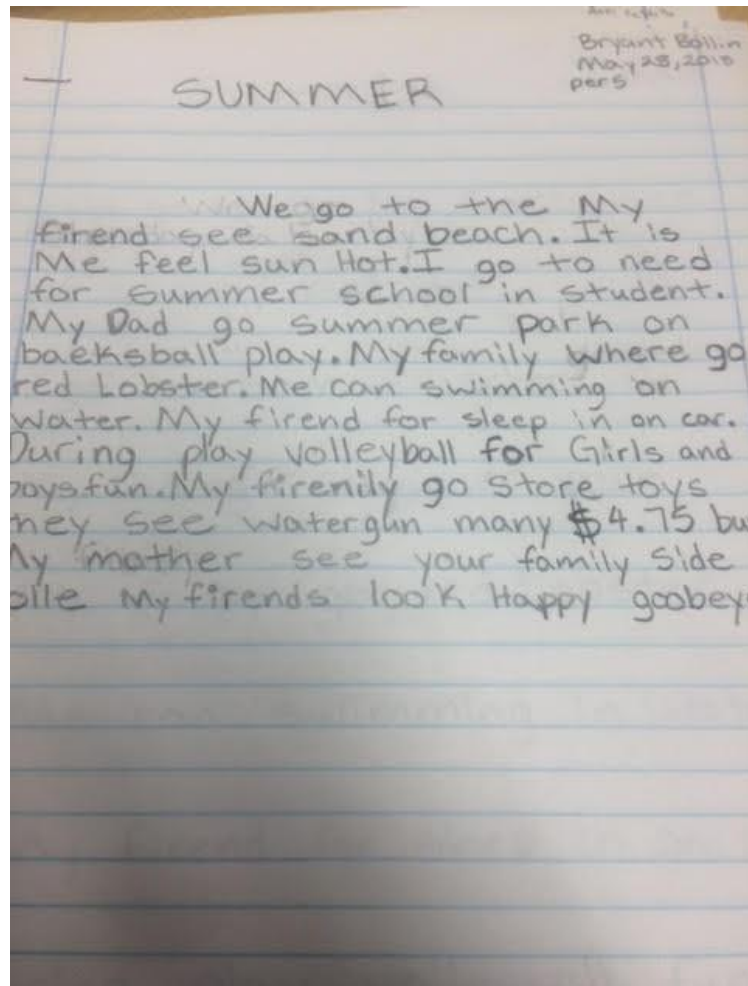 Bryant Bollin
May 25, 2015
per 5
SUMMER
We go to the My
firend see sand beach. It is
Me feel sun Hot. I go to need
for summer school in student.
My Dad go summer park on
baeksball play. My family where go
red Lobster. Me can swimming on
water. My firend for sleep in on car.
During play volleyball for Girls and
boys fun. My firenily go store toys
they see watergun many $4.75 bu
My mother see your family side
My firends look Happy goobey